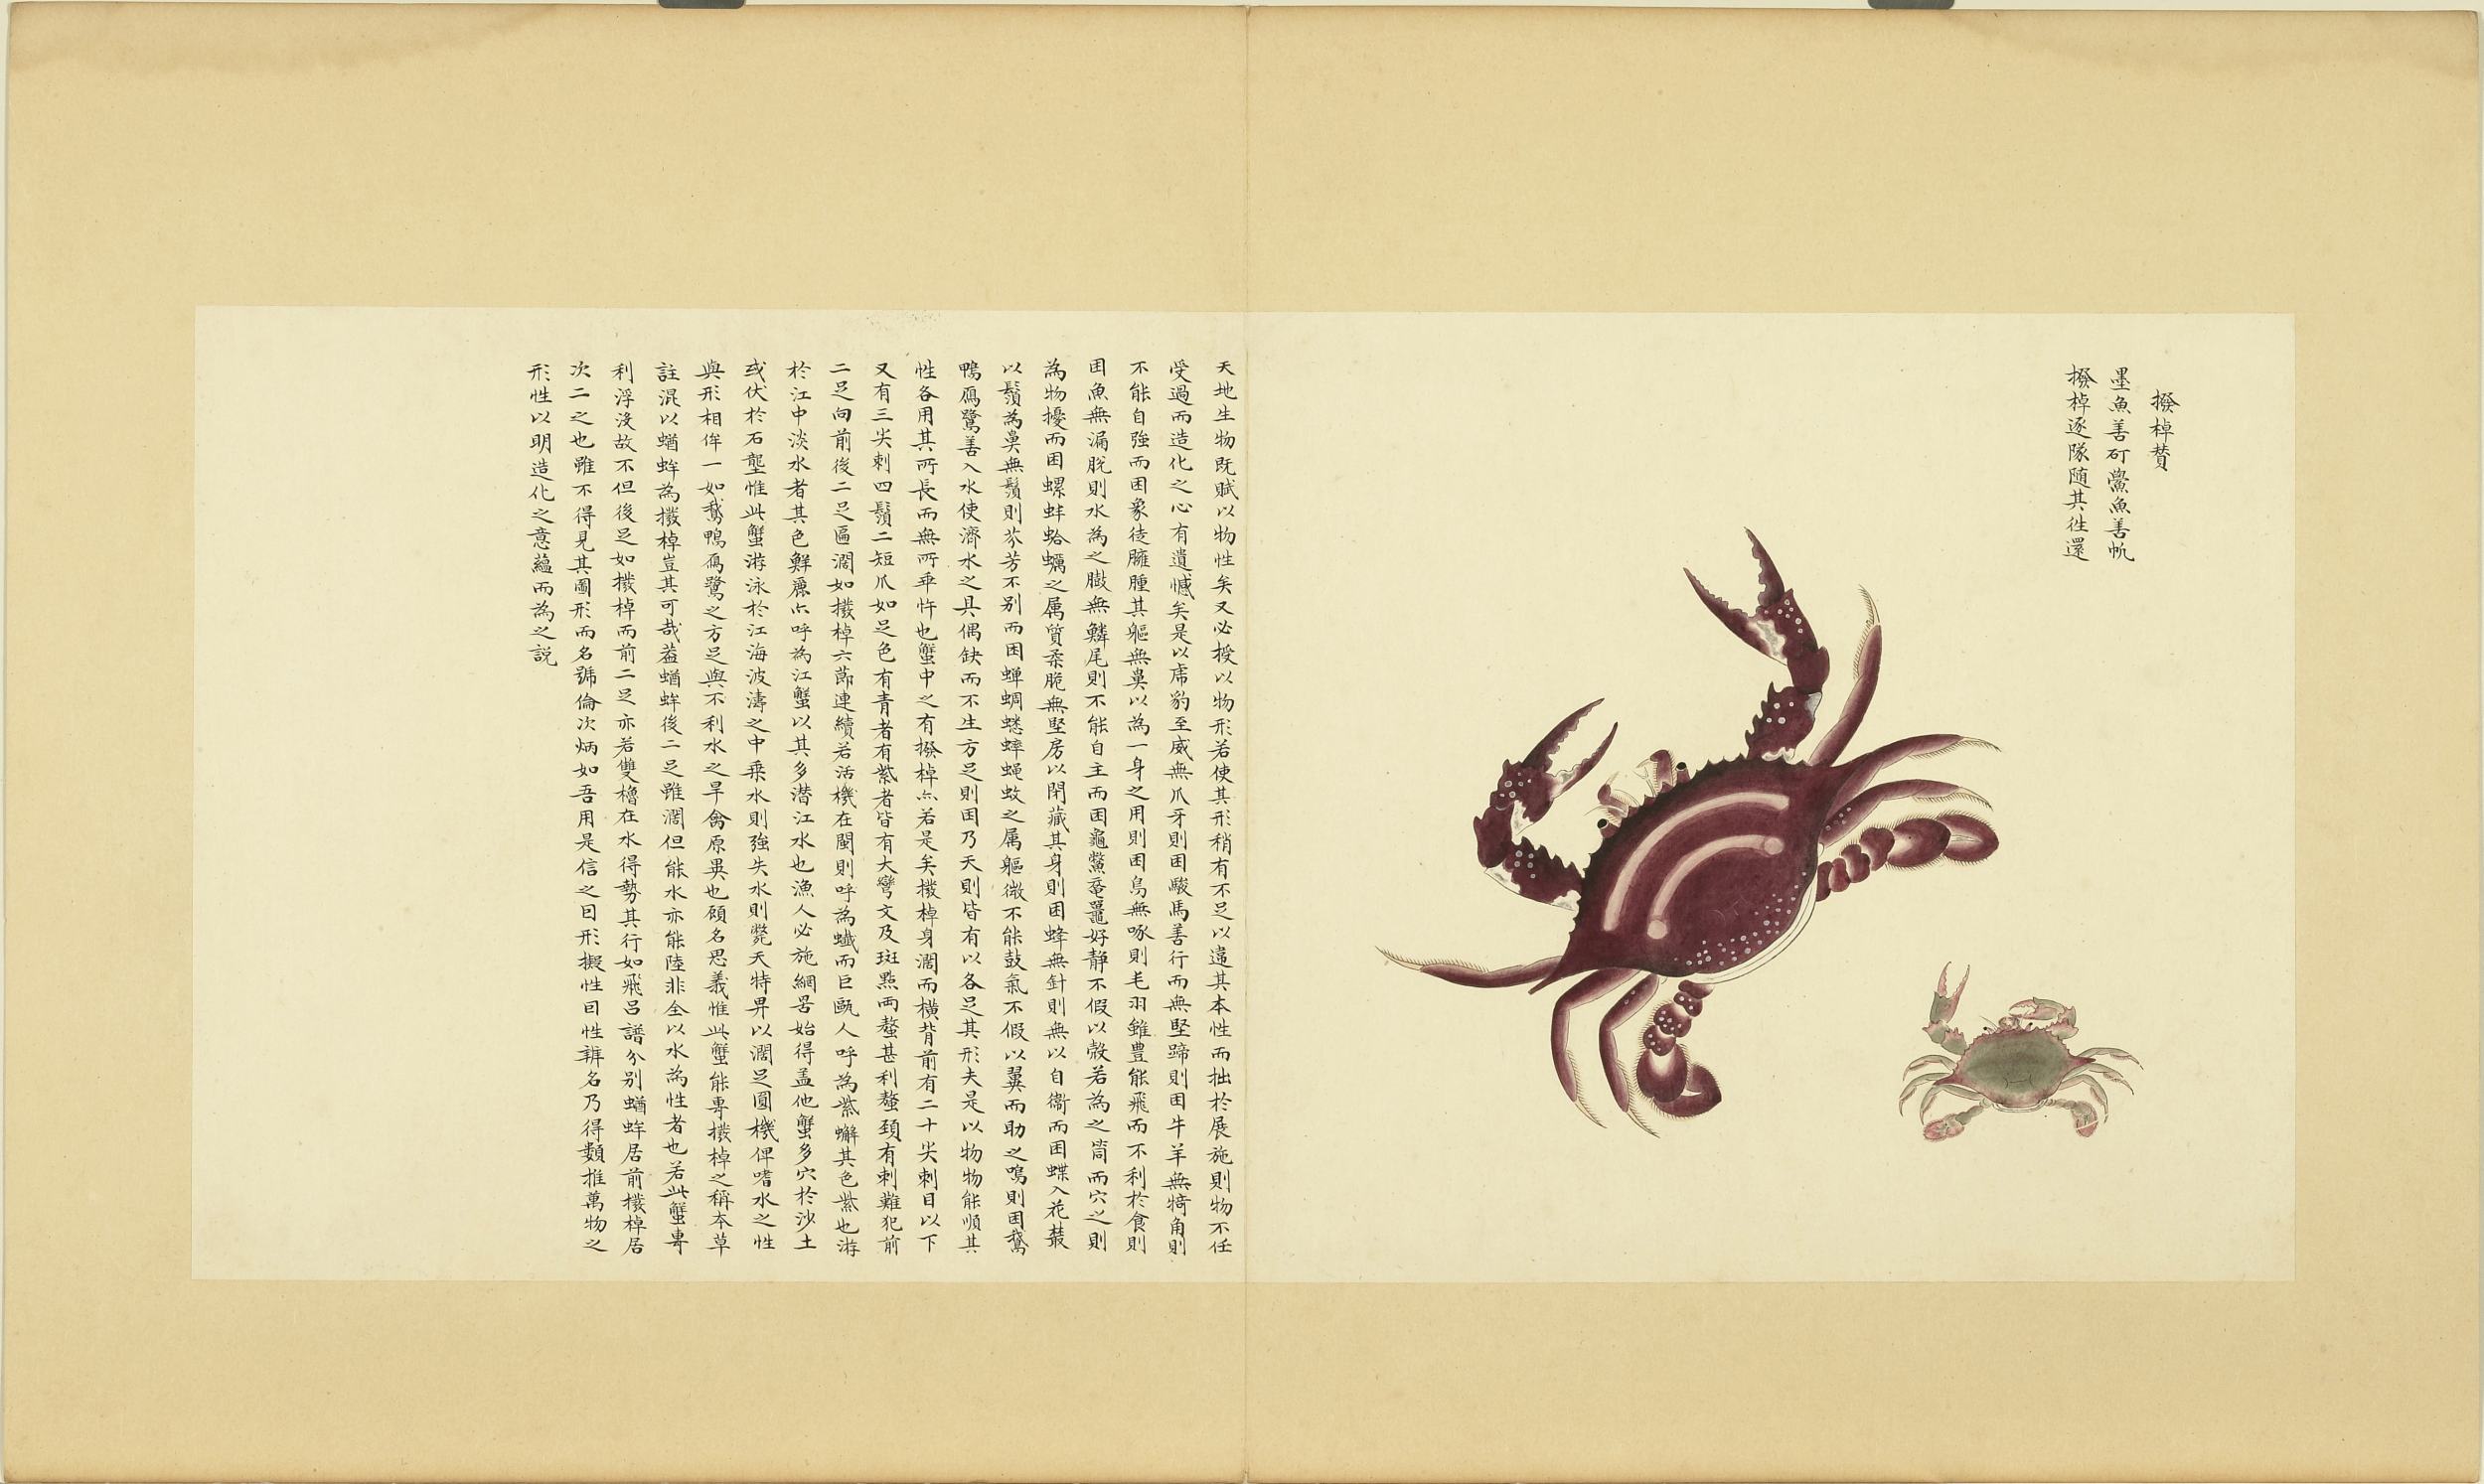 撥棹贊
墨魚善矴鱟魚善帆
撥棹逐隊随其徃還
天地生物既賦以物性矣又必授以物形若使其形稍有不足以違其本性而拙於展施則物不任
受過而造化之心有遺憾矣是以席豹至威無爪牙則困駿馬善行而無堅蹄則困牛羊無犄角則
不能自強而困象徒臃腫其軀無鼻以為一身之用則困鳥無啄則毛羽雖豊能飛而不利於食則
困魚無漏脫則水為之臌無鱗尾則不能自主而困龜鱉黿鼉好靜不假以殼若為之筒而穴之則
為物擾而困螺蚌蛤蠣之属質柔脆無堅房以閉藏其身則困蜂無針則無以自衞而困蝶入花叢
以鬚為鼻無鬚則芬芳不别而困蟬蜩蟋蟀蝇蚊之属軀微不能鼓氣不假以翼而助之鳴則困鵞
鴨鴈鷺善入水使濟水之具偶缺而不生方足則困乃天則皆有以各足其形夫是以物物能順其
性各用其所長而無所乖忤也蟹中之有撥棹亦若是矣撥棹身濶而橫背前有二十尖刺目以下
又有三尖刺四鬚二短爪如足色有青者有紫者皆有大彎文及斑㸃兩螯甚利螯頚有刺難犯前
二足向前後二足匾濶如撥棹六莭連續若活機在閩則呼為蠘而巨甌人呼為紫蠏其色紫也游
於江中淡水者其色鮮麗亦呼為江蟹以其多潜江水也漁人必施網罟始得盖他蟹多穴於沙土
或伏於石壑惟此蟹游泳於江海波濤之中乗水則強失水則斃天特畀以濶足圓機俾嗜水之性
與形相侔一如鵞鴨鴈鷺之方足與不利水之旱禽原異也顧名思義惟此蟹能専撥棹之稱本草
註混以蝤蛑為撥棹豈其可哉葢蝤蛑後二足雖濶但能水亦能陸非全以水為性者也若此蟹専
利浮没故不但後足如撥棹而前二足亦若雙櫓在水得勢其行如飛吕譜分别蝤蛑居前撥棹居
次二之也雖不得見其圖形而名號倫次炳如吾用是信之曰形擬性曰性辨名乃得類推萬物之
形性以明造化之意藴而為之説